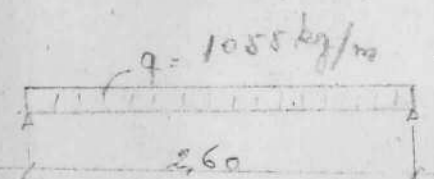 q = 1055 kg/m
2,60